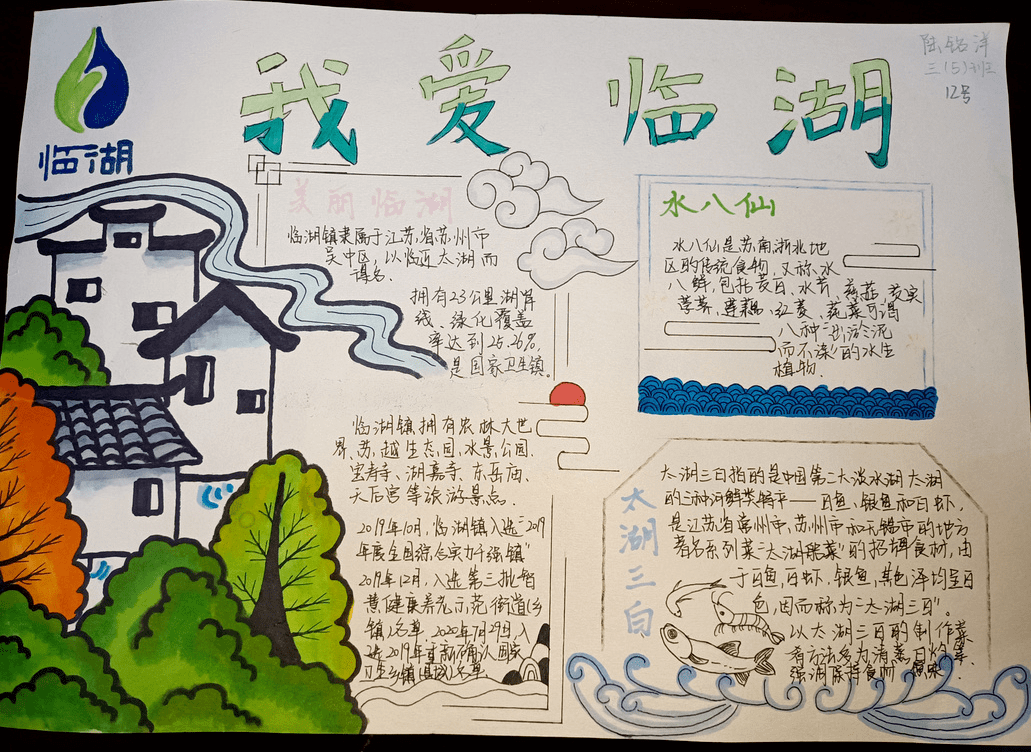 临湖
我爱临湖
陆铭洋
三(5)班
12号
美丽临湖
临湖镇隶属于江苏省苏州市
吴中区,以临近太湖而
得名.
拥有23公里湖岸
线,绿化覆盖
率达到25.26%,
是国家卫生镇。
临湖镇拥有农林大世
界、苏越生态园、水景公园、
宝寿寺、湖嘉寺、东岳庙、
天后宫等旅游景点.
2019年10月,临湖镇入选"2019
年度全国综合实力千强镇"
2019年12月,入选第三批智
慧健康养老示范街道(乡
镇)名单,2020年7月29日,入
选2019年重新确认国家
卫生乡镇(县城)名单
水八仙
水八仙是苏南浙北地
区的传统食物,又称水
八鲜,包括茭白、水芹、慈菇、芡实
荸荠、莼藕、红菱、
八种"出淤泥
而不染"的水生
植物.
太湖三白
太湖三白指的是中国第二大淡水湖太湖
的三种河鲜类 —— 白鱼,银鱼和白虾,
是江苏省常州市,苏州市和无锡市的地方
著名系列菜"太湖 菜"的招牌食材,由
于白鱼,白虾,银鱼,其色泽均呈白
色,因而称为"太湖三白"。
以太湖三白的制作菜
肴方法多为清蒸白灼等,
强调保持食 原味.